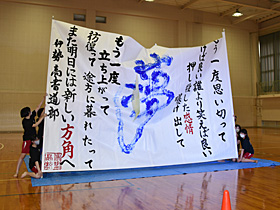 もう一度思い切って
けば良い誰より笑えば良い
押し殺した感情
曝け出して
夢
もう一度
立ち上がって
彷徨って途方に暮れたって
また明日には新しい方角へ
伊勢高書道部